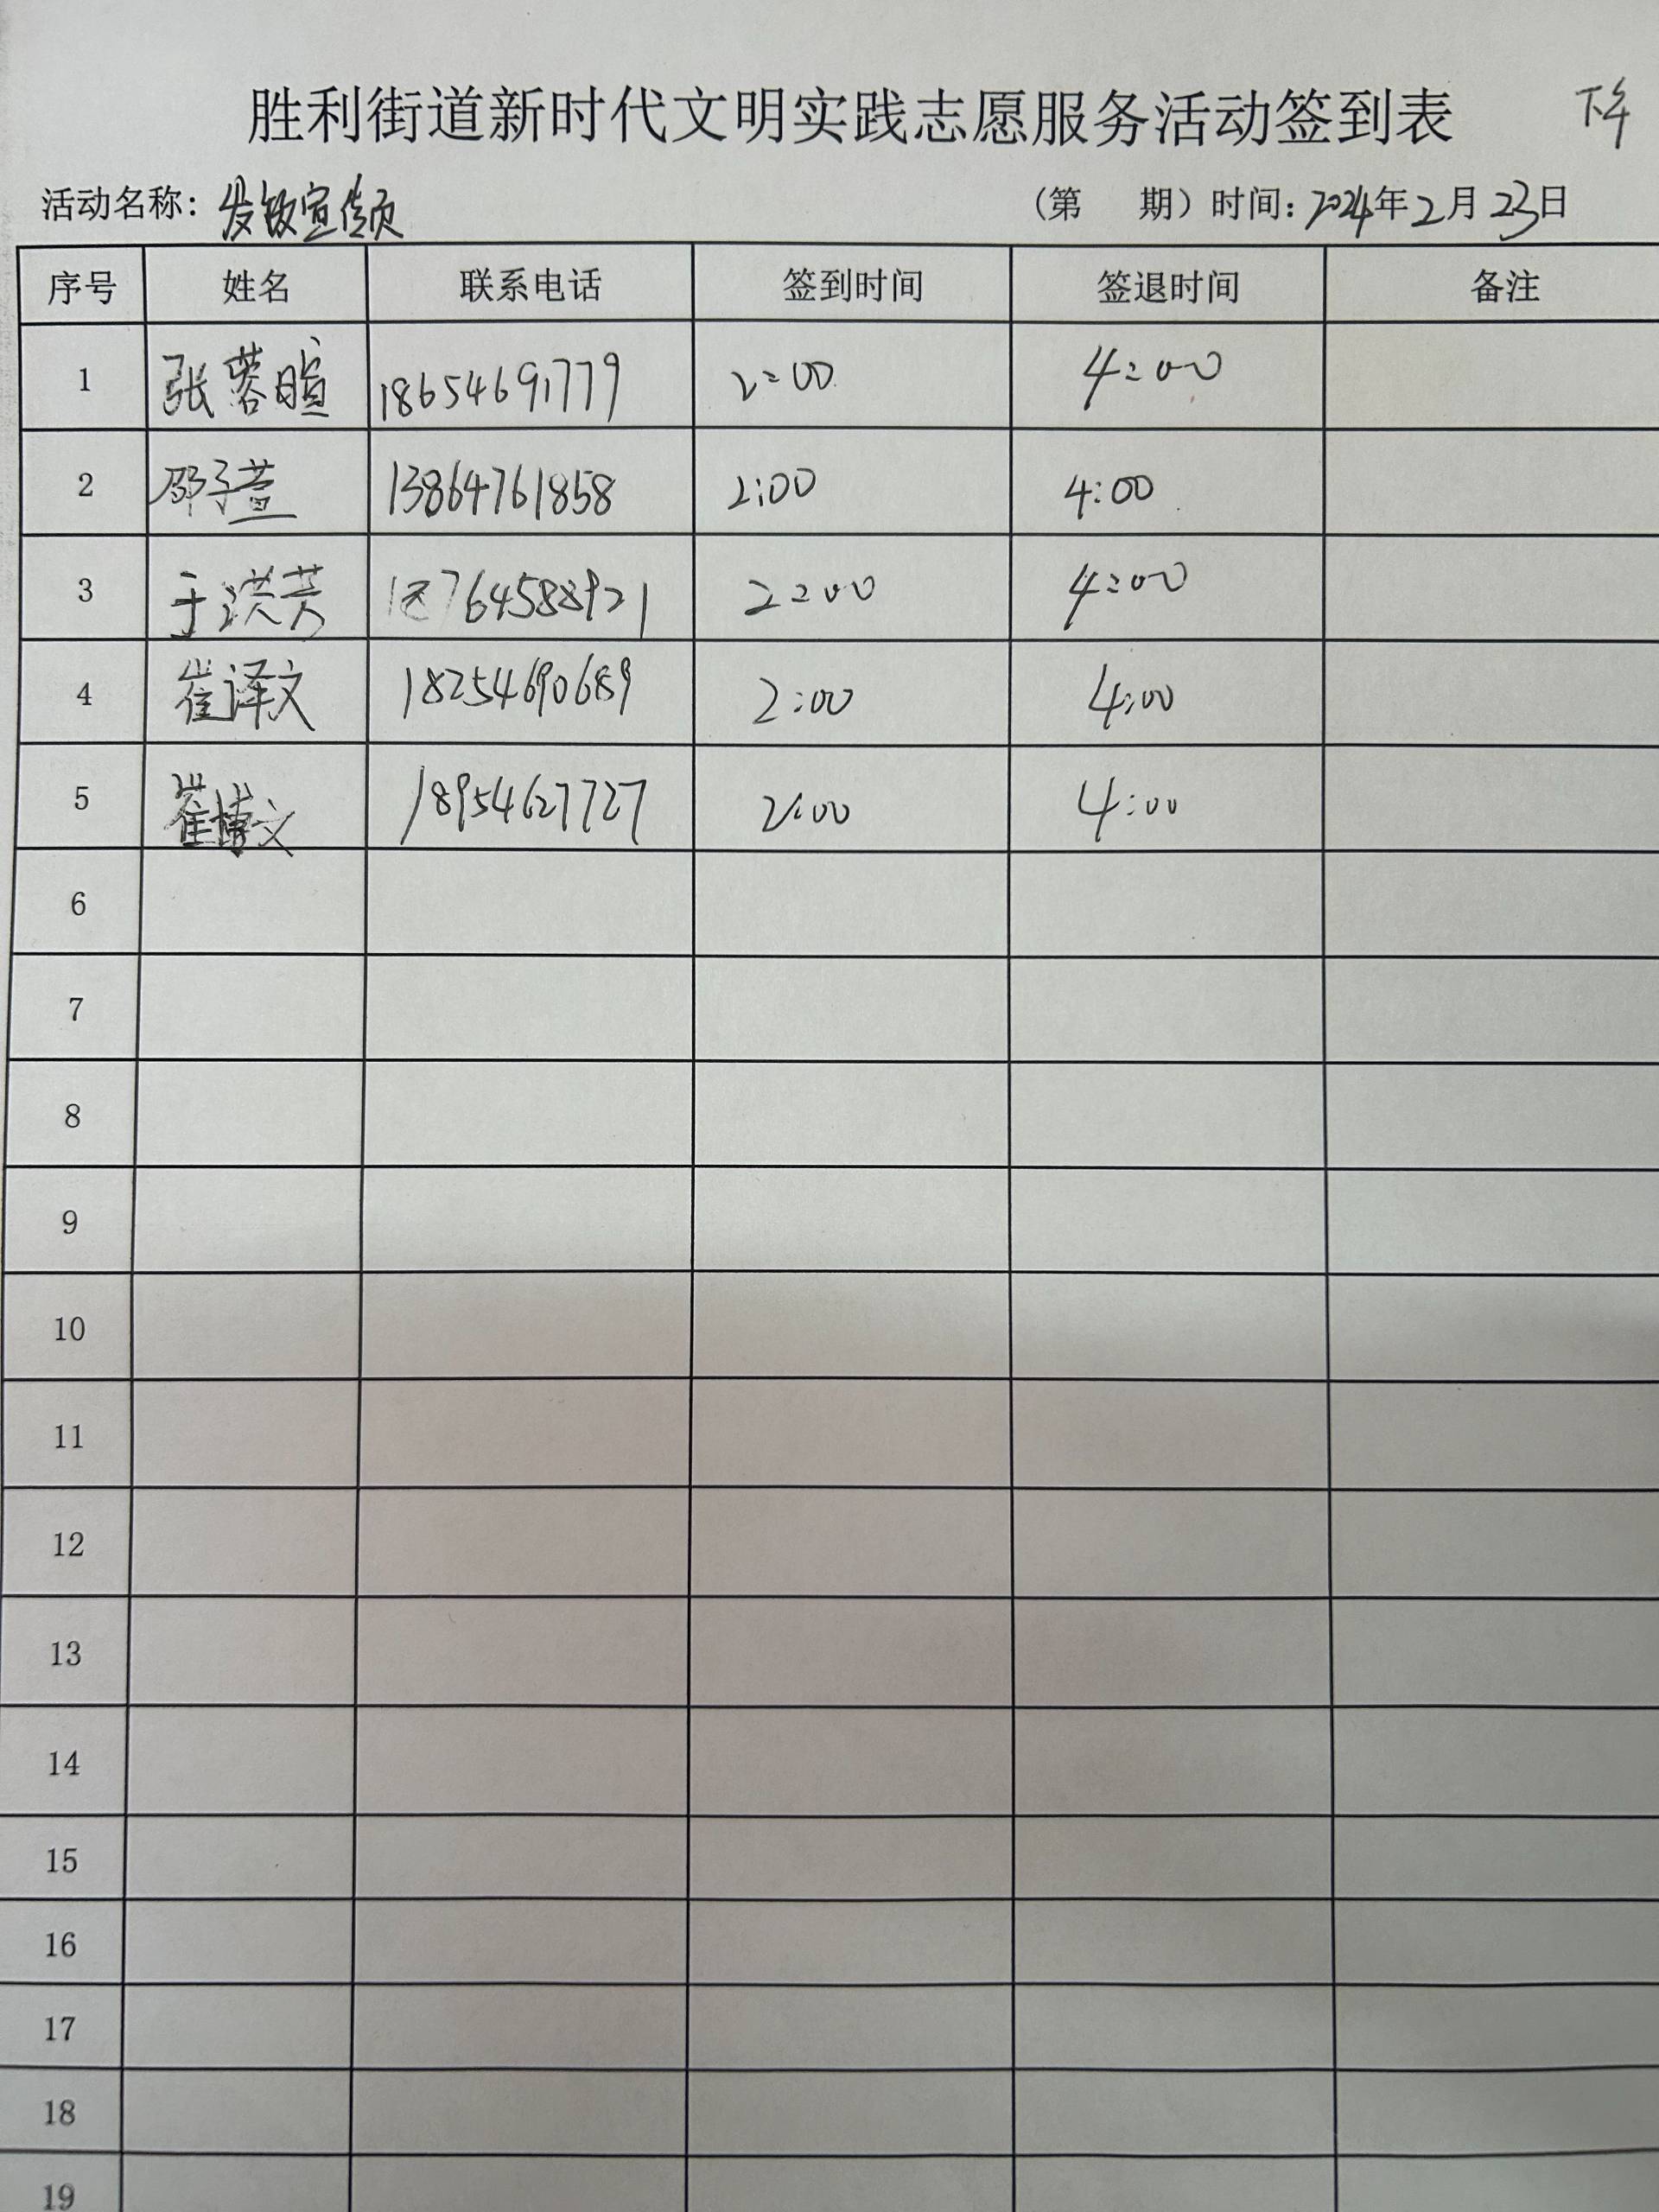 胜利街道新时代文明实践志愿服务活动签到表 下午
活动名称：发放宣传页 （第 期）时间：2024年2月23日
序号 姓名 联系电话 签到时间 签退时间 备注
1 张蓉暄 18654691779 2:00 4:00
2 邵子萱 13864761858 2:00 4:00
3 于洪芳 18764588921 2:00 4:00
4 崔译文 18254690689 2:00 4:00
5 崔博文 18954627727 2:00 4:00
6
7
8
9
10
11
12
13
14
15
16
17
18
19